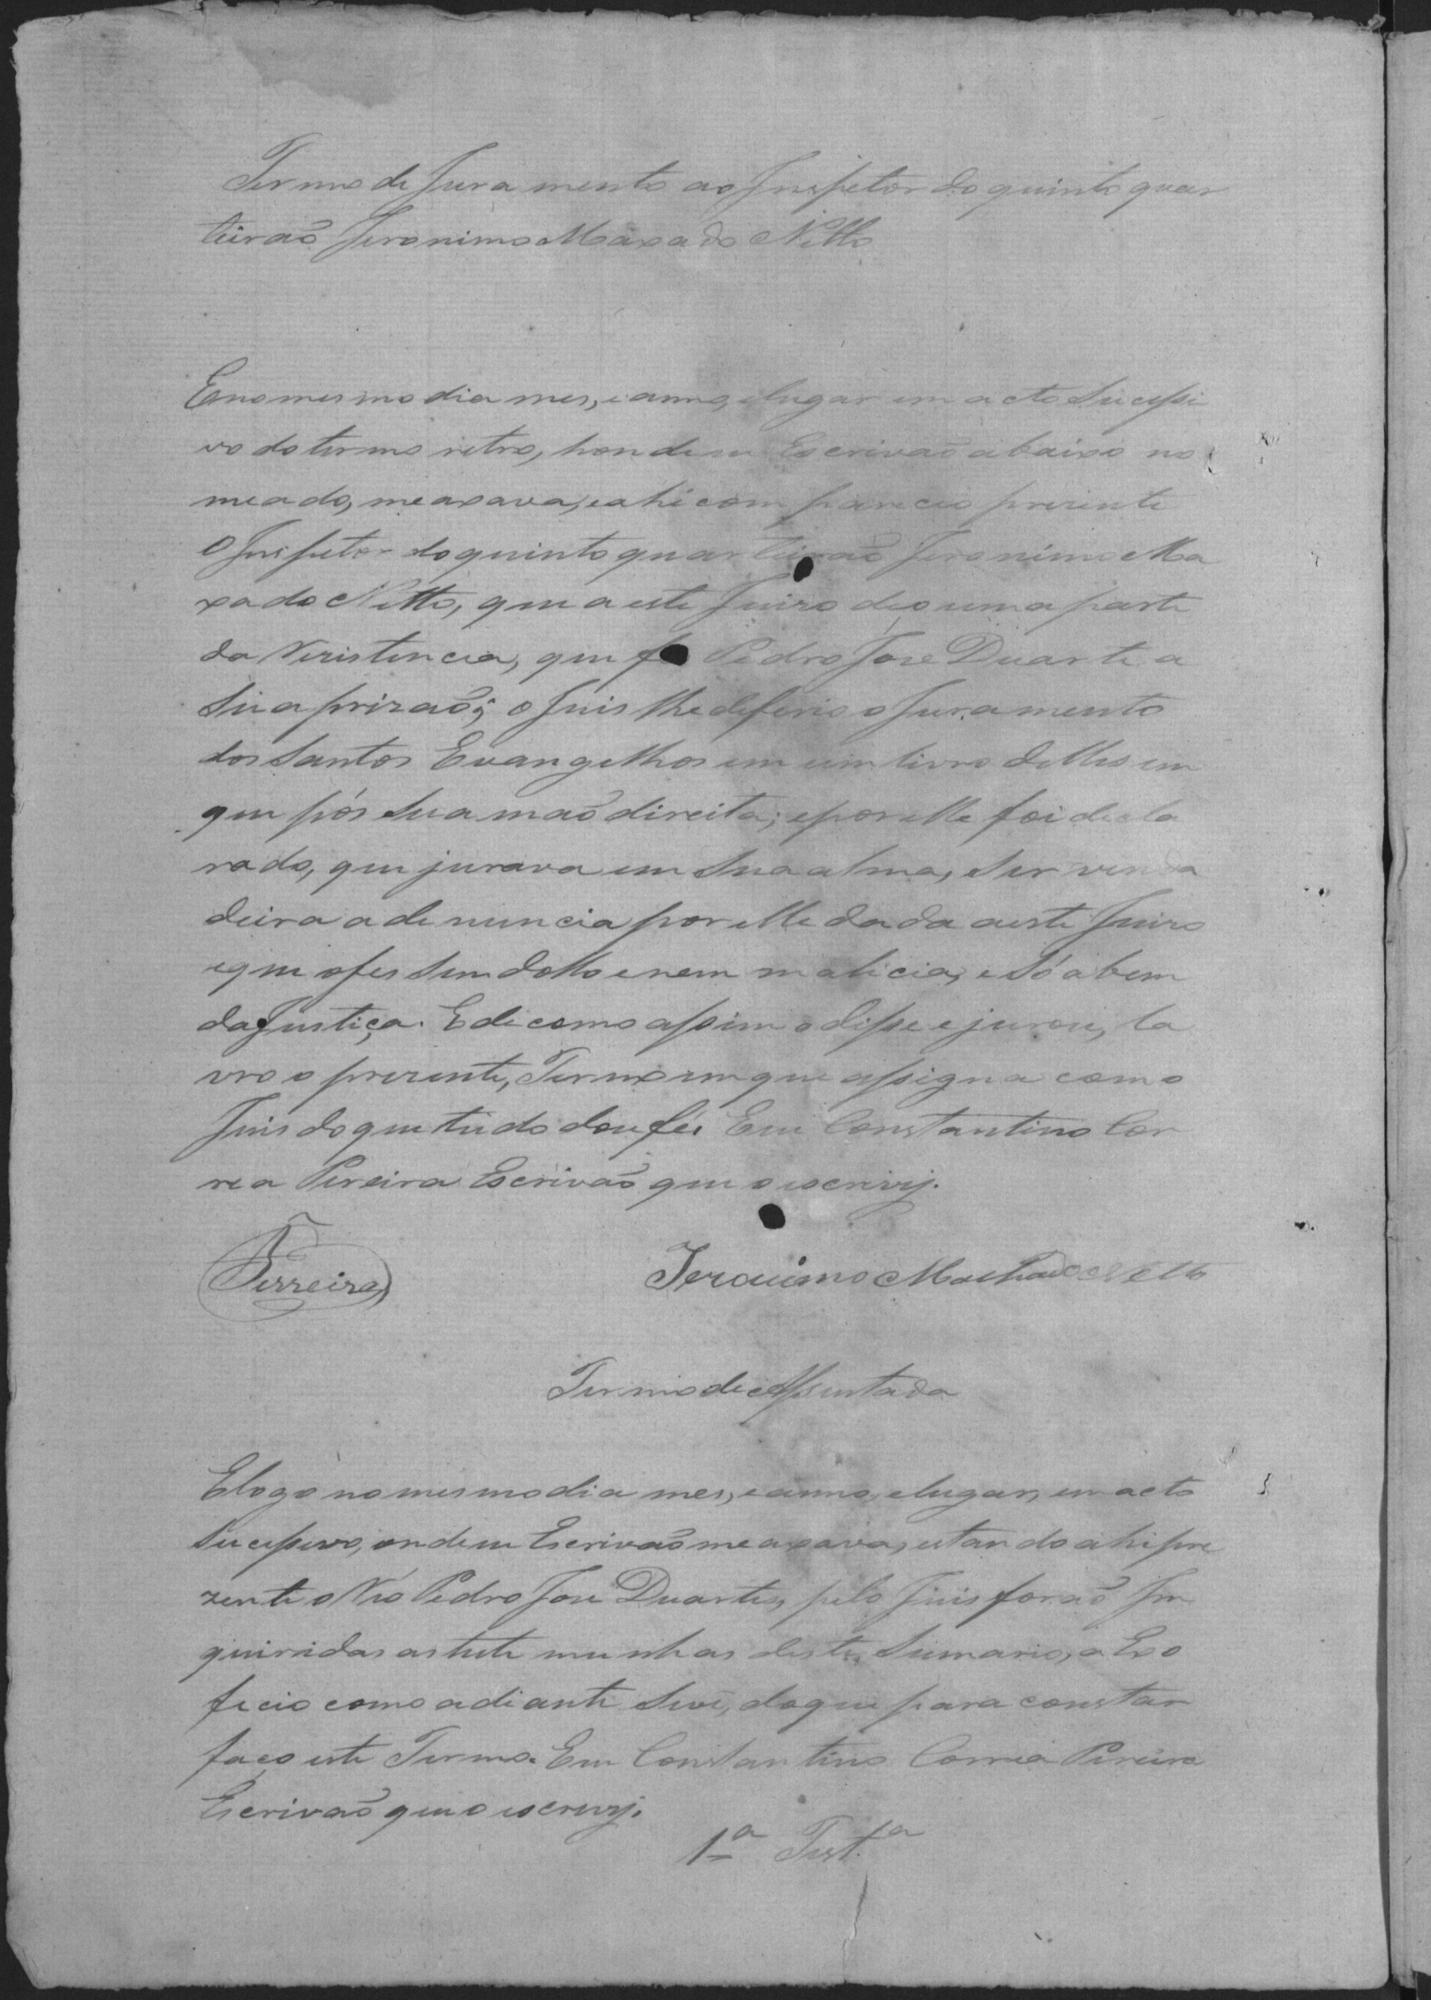 Termo de Juramento ao Inspetor do quinto quar
teirão Jeronimo Maxado Netto
E no mesmo dia mes, e anno, e lugar em acto Sucessi
vo do termo retro, honde eu Escrivaõ abaixo no
meado, me axava, e ahi compareceo prezente
O Inspetor do quinto quarteiraõ Jeronimo Ma
xado Netto, que a este Juizo deo uma parte
da Rezistencia, que fes Pedro Jose Duarte a
Sua prizaõ; o Juis lhe deferio o Juramento
dos Santos Evangelhos em um livro delles em
que pós Sua maõ direita; e por elle foi decla
rado, que jurava em Sua alma, Ser verda
deira a denuncia por elle dada a este Juizo
e que o fes Sem dollo e nem malicia, e Só a bem
da Justiça. E de como assim o disse e jurou, la
vro o prezente, Termo em que assigna com o
Juis do que tudo dou fé. Eu Constantino Cor
rea Pereira Escrivaõ que o escrivy.
Ferreira
Jeronimo Machado Netto
Termo de Assentada
E logo no mesmo dia mes, e anno, e lugar, em acto
Sucessivo, onde eu Escrivaõ me axava, estando ahi pre
zente o Reo Pedro Jose Duarte, pelo Juis foraõ In
quiridas as testemunhas deste Sumario, a Exo
ficio como adiante Se vê, do que para constar
faço este Termo. Eu Constantino Correa Pereira
Escrivaõ que o escrevy.
1ª Test.ª